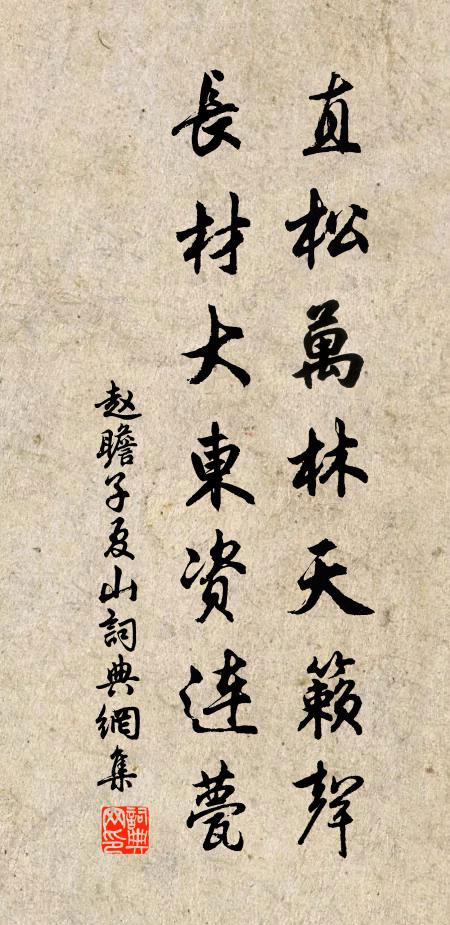 直松萬林天籟聲
長材大東資連甍
赵瞻子夏山詞典網集
詞典網印